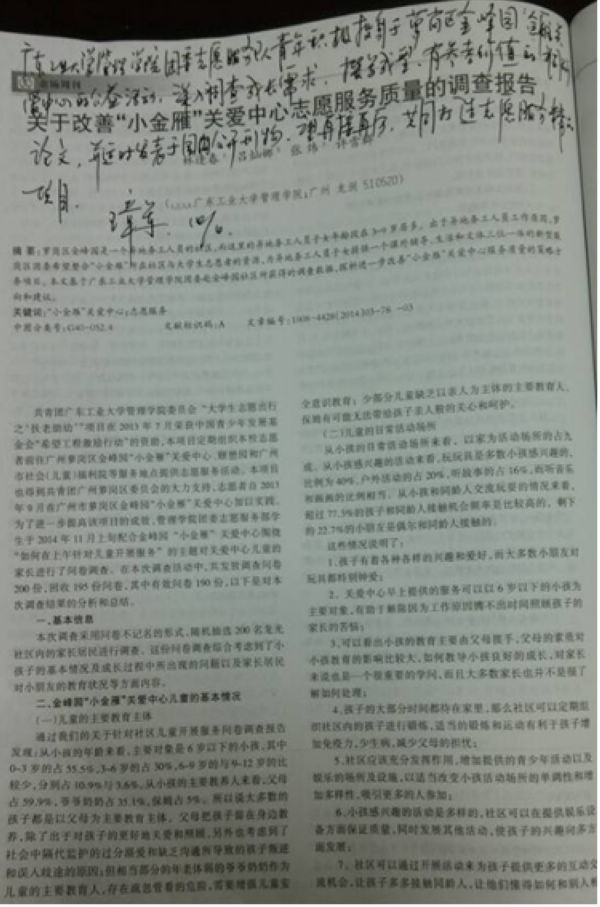 广东工业大学管理学院团委志愿服务队青年积极投身于萝岗区金峰园
中心的公益活动，深入调查成长需求，撰写
论文，并适时发表于国内公开刊物，望再接再厉，共同打造志愿服务
项目。
关于改善“小金雁”关爱中心志愿服务质量的调查报告
广东工业大学管理学院；广州 龙洞 510520）
关键词：“小金雁”关爱中心；志愿服务
中图分类号：G40-052.4 文献标识码：A 文章编号：1008-4428(2014)03-78 -03
共青团广东工业大学管理学院委员会“大学生志愿出行
之‘扶老助幼’”项目在 2013 年 7 月荣获中国青少年发展基
金会“希望工程激励行动”的资助，本项目定期组织本校志愿
者前往广州萝岗区金峰园“小金雁”关爱中心、颐憩园和广州
市社会（儿童）福利院等服务地点提供志愿服务活动。本项目
也得到共青团广州萝岗区委员会的大力支持，志愿者自 2013
年 9 月在广州市萝岗区金峰园“小金雁”关爱中心加以实践。
为了进一步提高该项目的成效，管理学院团委志愿服务部学
生于 2014 年 11 月上旬配合金峰园“小金雁”关爱中心围绕
“如何在上午针对儿童开展服务”的主题对关爱中心儿童的
家长进行了问卷调查。在本次调查活动中，共发放调查问卷
200 份，回收 195 份问卷，其中有效问卷 190 份，以下是对本
次调查结果的分析和总结。
一、基本信息
本次调查采用问卷不记名的形式，随机抽选 200 名龙光
社区内的家长居民进行调查。这份问卷调查综合考虑到了小
孩子的基本情况及成长过程中所出现的问题以及家长居民
对小朋友的教育状况等方面内容。
二、金峰园“小金雁”关爱中心儿童的基本情况
（一）儿童的主要教育主体
通过我们的关于针对社区儿童开展服务问卷调查报告
发现：从小孩的年龄来看，主要对象是 6 岁以下的小孩，其中
0-3 岁的占 55.5%，3-6 岁的占 30%，6-9 岁的与 9-12 岁的比
较少，分别占 10.9% 与 3.6%。从小孩的主要教养人来看，父母
占 59.9%，爷爷奶奶占 35.1%，保姆占 5%。所以说大多数的
孩子都是以父母为主要教育主体，父母把孩子留在身边教
养，除了出于对孩子的更好地关爱和照顾，另外也考虑到了
社会中隔代监护的过分溺爱和缺乏沟通所导致的孩子叛逆
和误入歧途的原因；但相当部分的年老体弱的爷爷奶奶作为
儿童的主要教育人，存在疏忽管看的危险，需要增强儿童安
全意识教育；少部分儿童缺乏以亲人为主体的主要教育人，
保姆有可能无法带给孩子亲人般的关心和呵护。
（二）儿童的日常活动场所
从小孩的日常活动场所来看，以家为活动场所的占九
成。从小孩感兴趣的活动来看，玩玩具是多数小孩感兴趣的，
比例为 40%，户外活动的占 20%，听故事的占 16%，而听音乐
和画画的比例相当。从小孩和同龄人交流玩耍的情况来看，
超过 77.3% 的孩子和同龄人接触机会频率是比较高的，剩下
的 22.7% 的小朋友是偶尔和同龄人接触的。
这些情况说明了：
1、孩子有着各种各样的兴趣和爱好，而大多数小朋友对
玩具都特别钟爱；
2、关爱中心早上提供的服务可以以 6 岁以下的小孩为
主要对象，有助于解除因为工作原因腾不出时间照顾孩子的
家长的苦恼；
3、可以看出小孩的教育主要由父母接手，父母的素质对
小孩教育的影响比较大，如何教导小孩良好的成长，对家长
来说也是一个很重要的学问，而且大多数家长也并不是很了
解如何处理；
4、孩子的大部分时间都待在家里，那么社区可以定期组
织社区内的孩子进行锻炼，适当的锻炼和运动有利于孩子增
加免疫力，少生病，减少父母的担忧；
5、社区应该充分发挥作用，增加提供的青少年活动以及
娱乐的场所及设施，以适当改变小孩活动场所的单调性和增
加多样性，吸引更多的人参加；
6、小孩感兴趣的活动是多样的，社区可以在提供娱乐设
备方面保证质量，同时发展其他活动，使孩子的兴趣向多方
面发展；
7、社区可以通过开展活动来为孩子提供更多的互动交
流机会，让孩子多多接触同龄人，让他们懂得如何和别人相